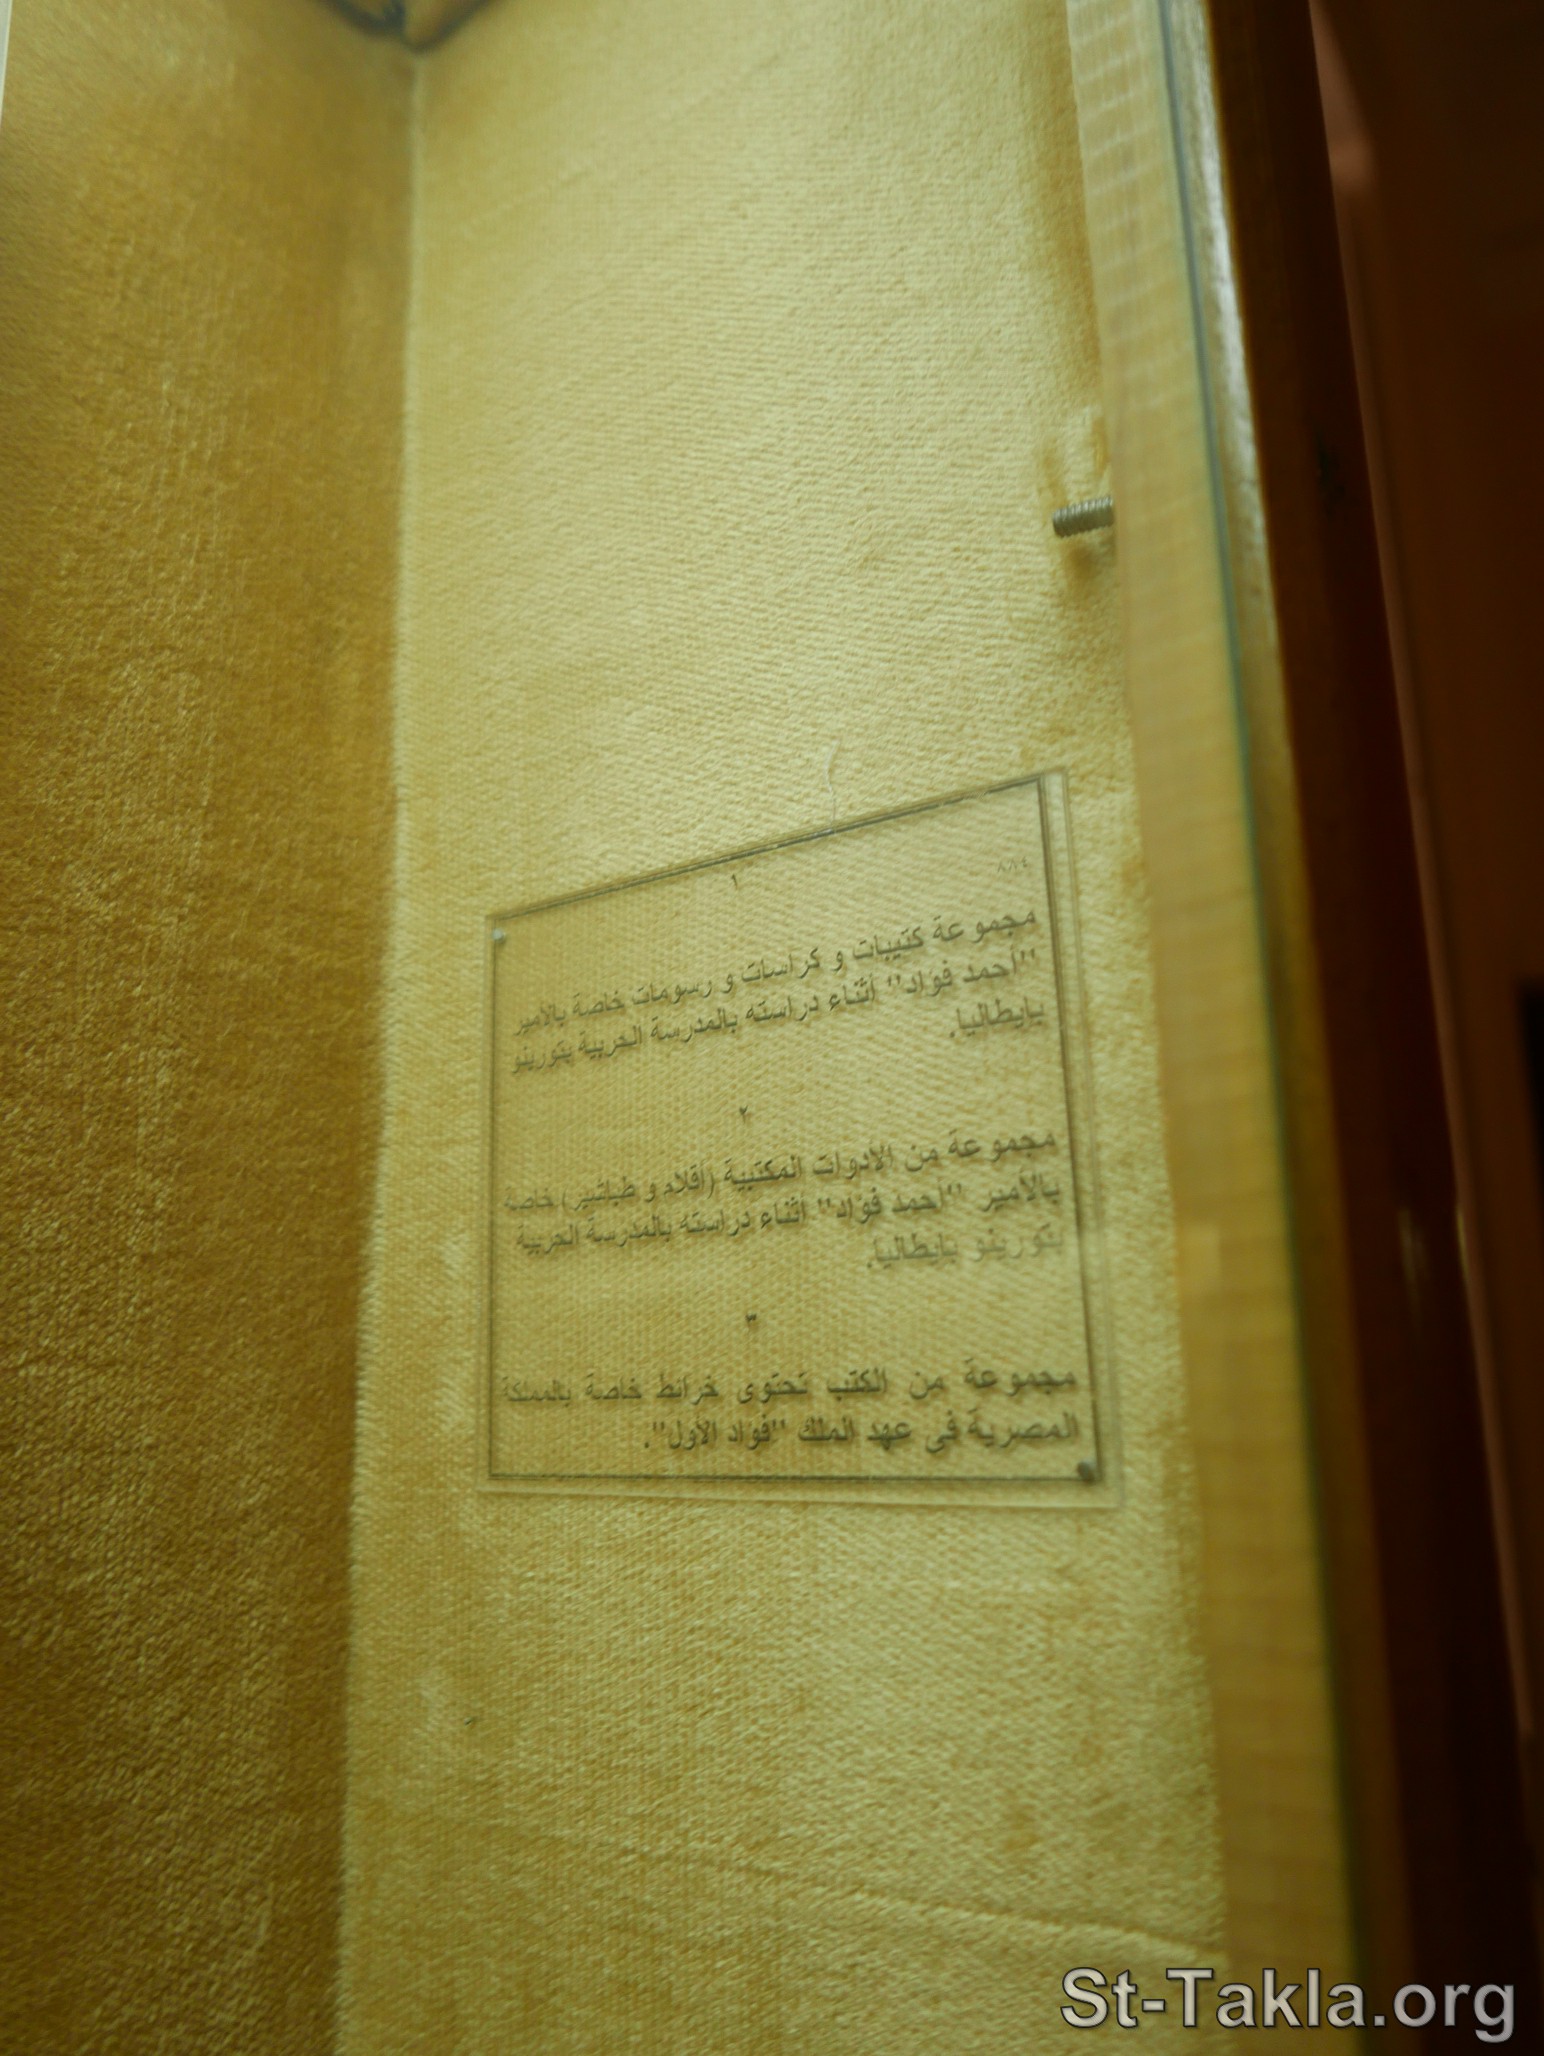 ٨٨٤
١
مجموعة كتيبات و كراسات و رسومات خاصة بالأمير
"أحمد فؤاد" أثناء دراسته بالمدرسة الحربية بتورينو
بإيطاليا.
٢
مجموعة من الأدوات المكتبية (أقلام و طباشير) خاصة
بالأمير "أحمد فؤاد" أثناء دراسته بالمدرسة الحربية
بتورينو بإيطاليا.
٣
مجموعة من الكتب تحتوى خرائط خاصة بالمملكة
المصرية فى عهد الملك "فؤاد الأول".
St-Takla.org